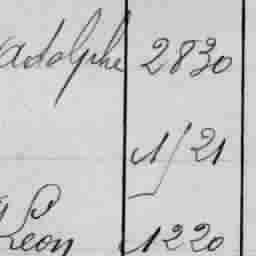 Adolphe 2830
1521
Léon 1220